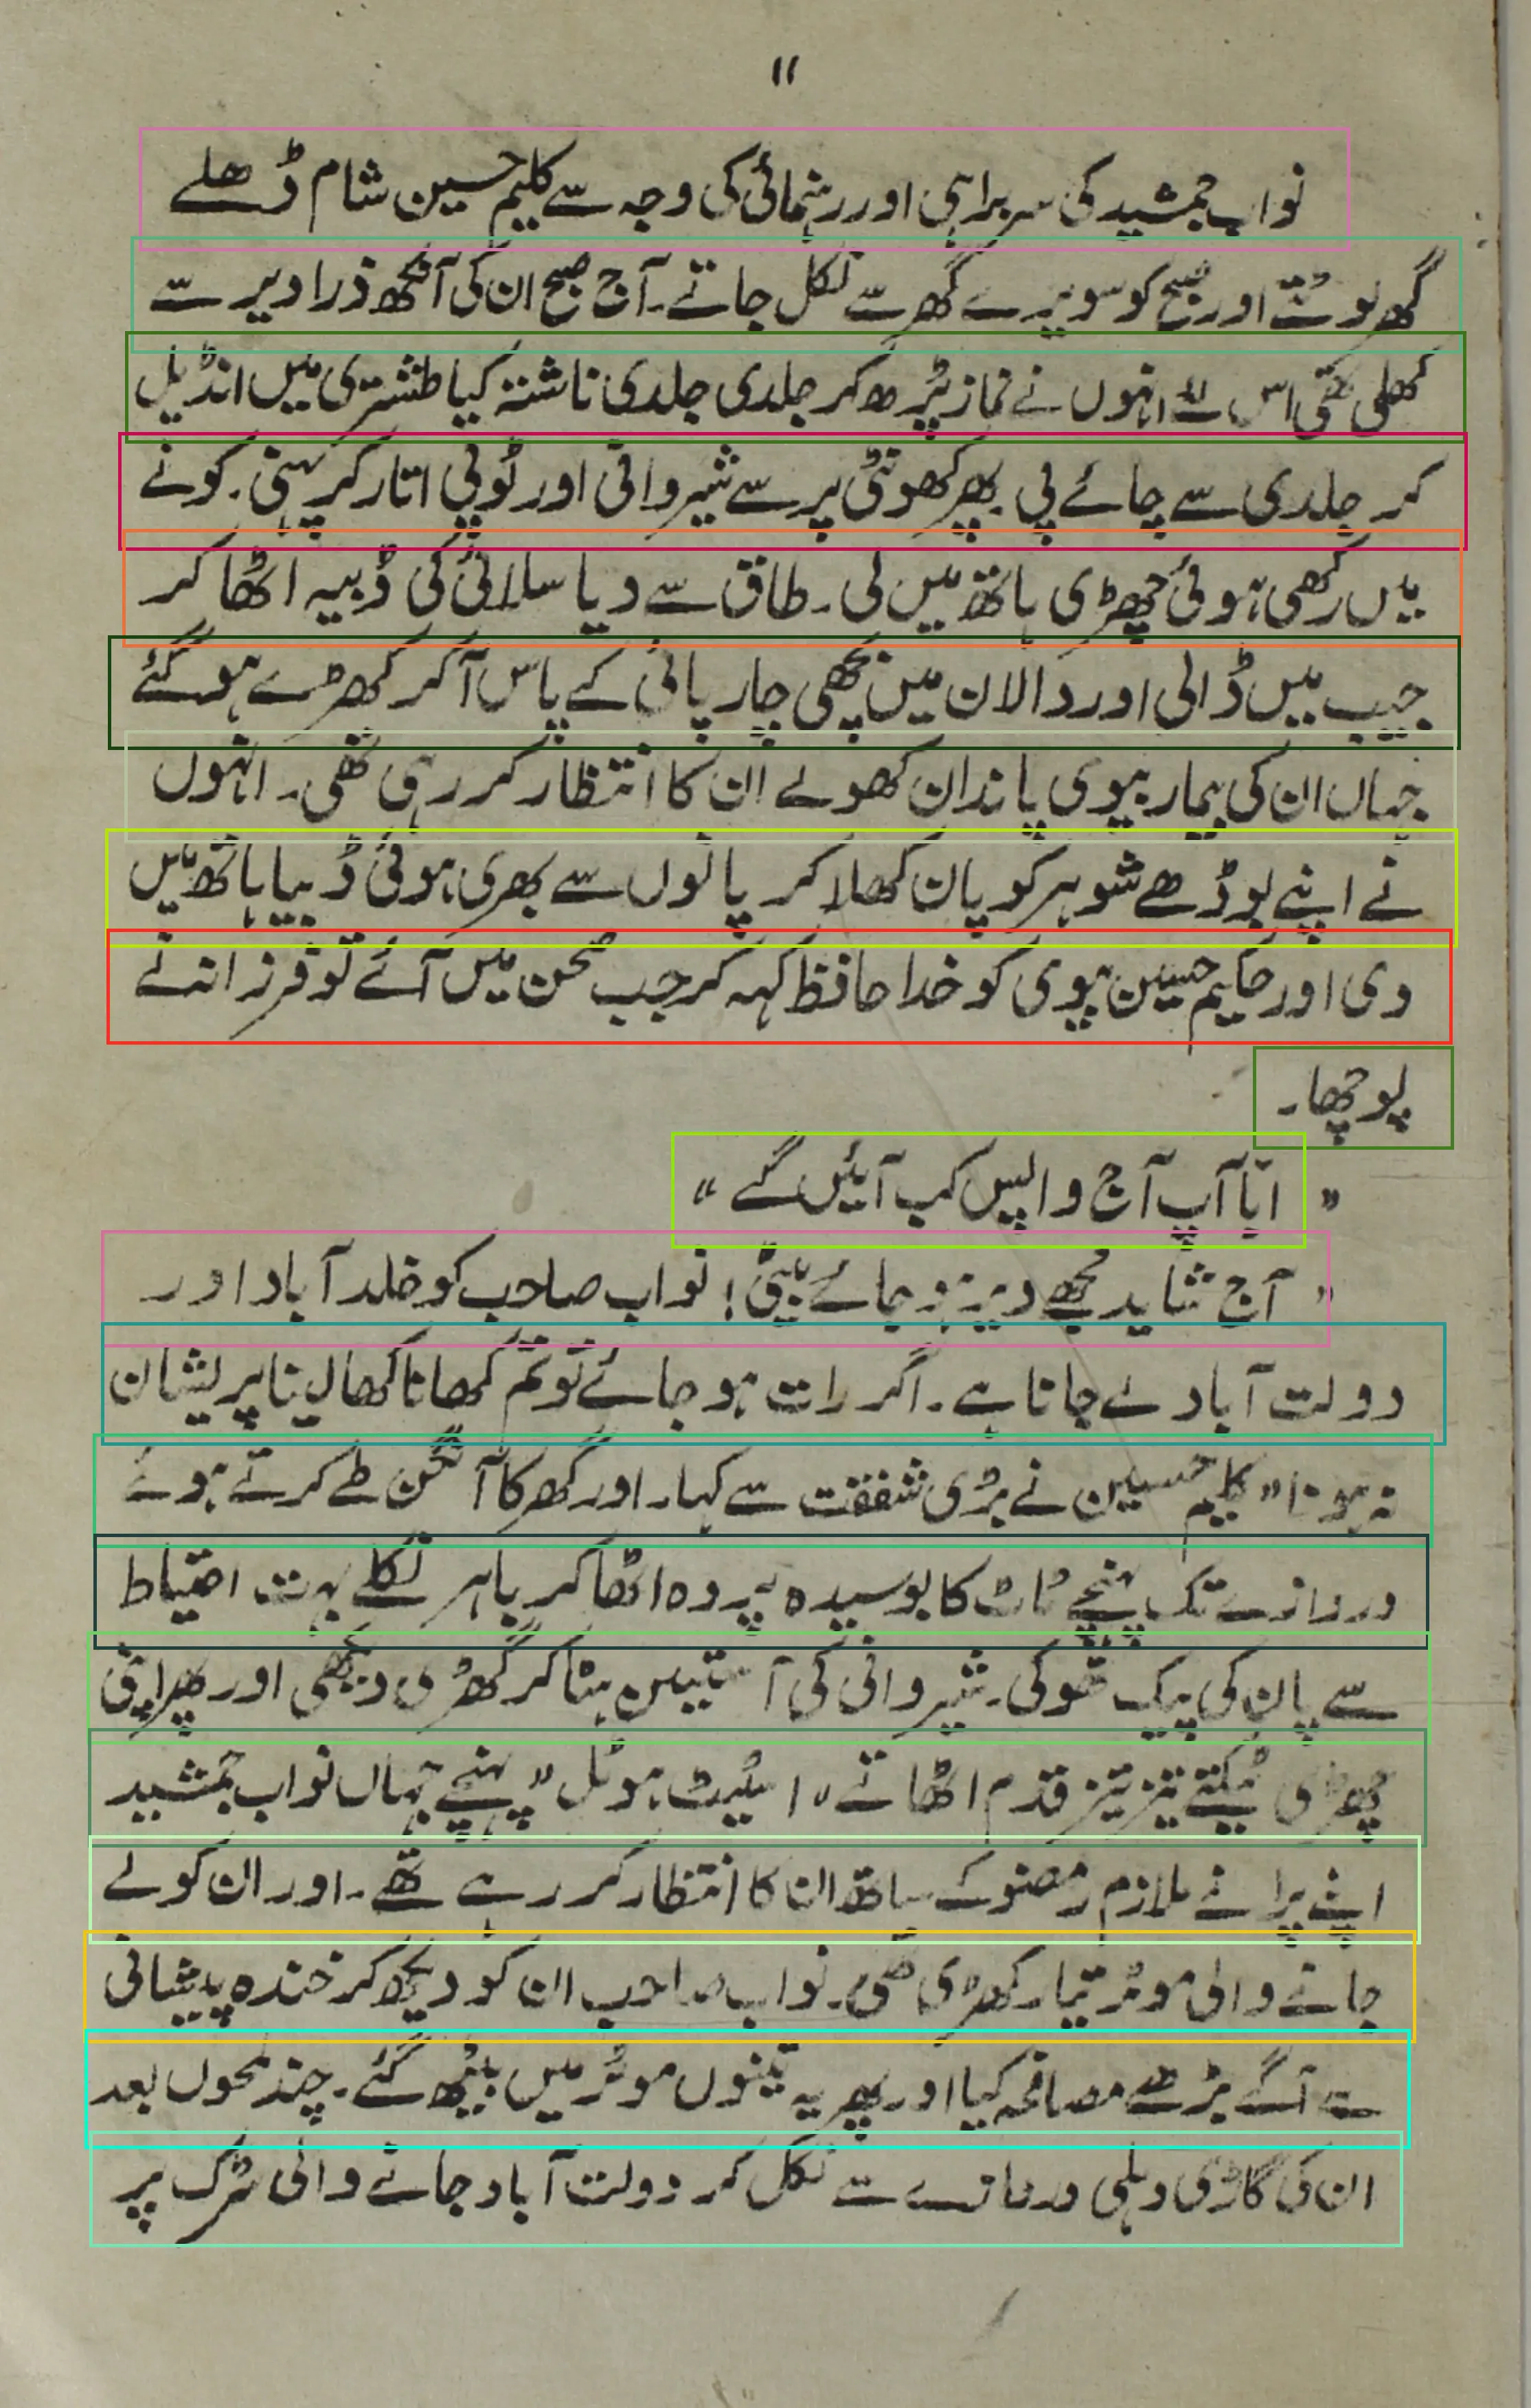 ۱۱
نواب جمشید کی سربراہی اور رہنمائی کی وجہ سے کلیم حسین شام ڈھلے
گھر لوٹتے اور صبح کو سویرے گھر سے نکل جاتے۔ آج صبح ان کی آنکھ ذرا دیر سے
کھلی تھی اس لئے انہوں نے نماز پڑھ کر جلدی جلدی ناشتہ کیا طشتری میں انڈیل
کر جلدی سے چائے پی۔ پھر کھونٹی پر سے شیروانی اور ٹوپی اتار کر پہنی۔ کونے
میں رکھی ہوئی چھڑی ہاتھ میں لی۔ طاق سے دیا سلائی کی ڈبیہ اٹھا کر
جیب میں ڈالی اور دالان میں بچھی چارپائی کے پاس آکر کھڑے ہو گئے
جہاں ان کی بیمار بیوی پاندان کھولے ان کا انتظار کر رہی تھی۔ انہوں
نے اپنے بوڈھے شوہر کو پان کھلا کر پانوں سے بھری ہوئی ڈبیا ہاتھ میں
دی اور حکیم حسین بیوی کو خدا حافظ کہہ کر جب صحن میں آئے تو فرزانہ نے
پوچھا۔
" ابّا آپ آج واپس کب آئیں گے "
" آج شاید مجھے دیر ہو جائے بیٹی! نواب صاحب کو خلد آباد اور
دولت آباد لے جانا ہے۔ اگر رات ہو جائے تو تم کھانا کھا لینا پریشان
نہ ہونا" کلیم حسین نے بڑی شفقت سے کہا۔ اور گھر کا آنگن طے کرتے ہوئے
دروازے تک پہنچے ٹاٹ کا بوسیدہ پردہ اٹھا کر باہر نکلے بہت احتیاط
سے پان کی پیک تھوکی۔ شیروانی کی آستین ہٹا کر گھڑی دیکھی اور پھر اپنی
چھڑی ٹیکتے تیز تیز قدم اٹھاتے "اسٹیٹ ہوٹل" پہنچے جہاں نواب جمشید
اپنے پرانے ملازم رمضو کے ساتھ ان کا انتظار کر رہے تھے۔ اور ان کو لے
جانے والی موٹر تیار کھڑی تھی۔ نواب صاحب ان کو دیکھ کر خندہ پیشانی
سے آگے بڑھے مصافحہ کیا اور پھر یہ تینوں موٹر میں بیٹھ گئے۔ چند لمحوں بعد
ان کی گاڑی دہلی دروازے سے نکل کر دولت آباد جانے والی سڑک پر